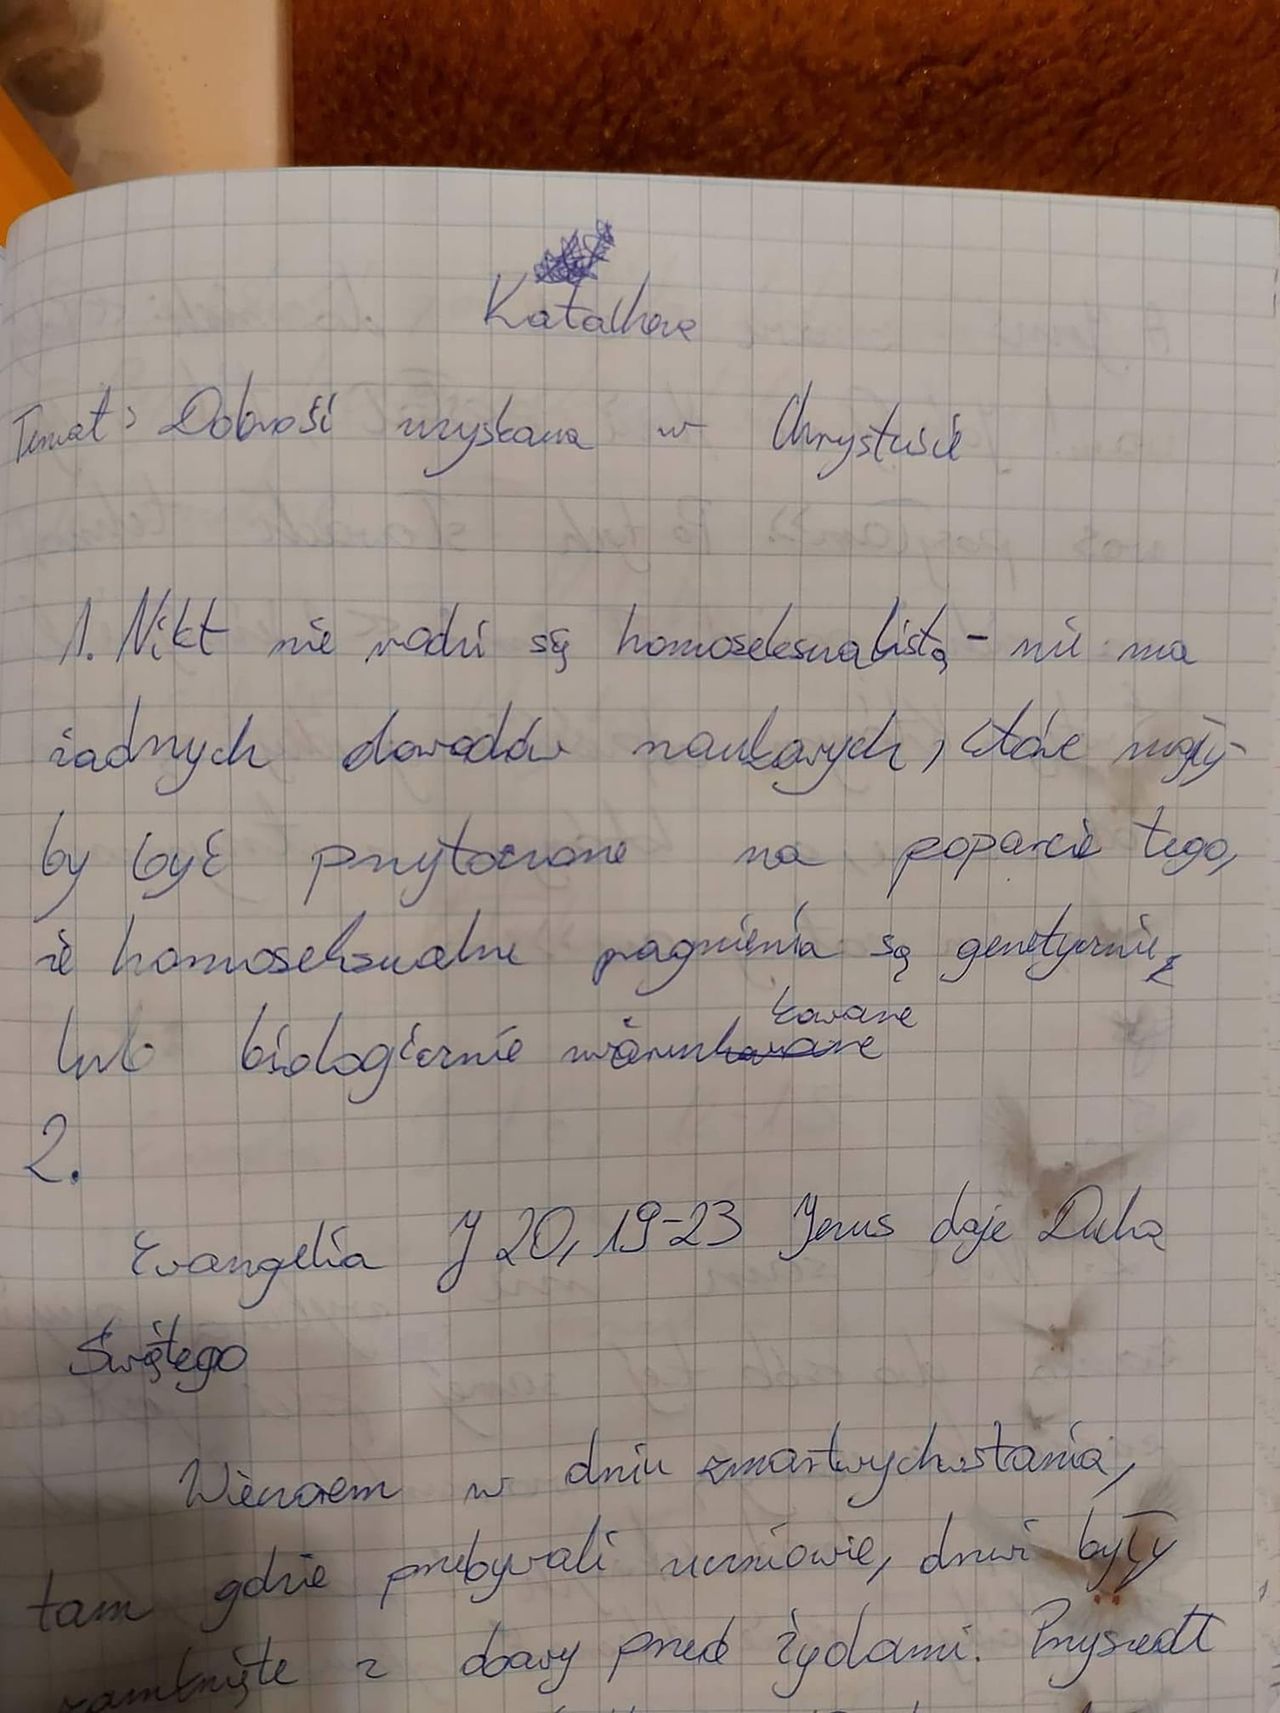 Katalheza
Temat: Dobrość uzyskana w Chrystusie
1. Nikt nie rodzi się homoseksualistą - nie ma
żadnych dowodów naukowych, które mogły-
by być przytoczone na poparcie tego,
że homoseksualne pragnienia są genetycznie,
lub biologicznie uwarunkowane
2.
Ewangelia J 20, 19-23 Jezus daje Ducha
Świętego
Wieczorem w dniu zmartwychwstania,
tam gdzie przebywali uczniowie, drzwi były
zamknięte z obawy przed żydami. Przyszedł